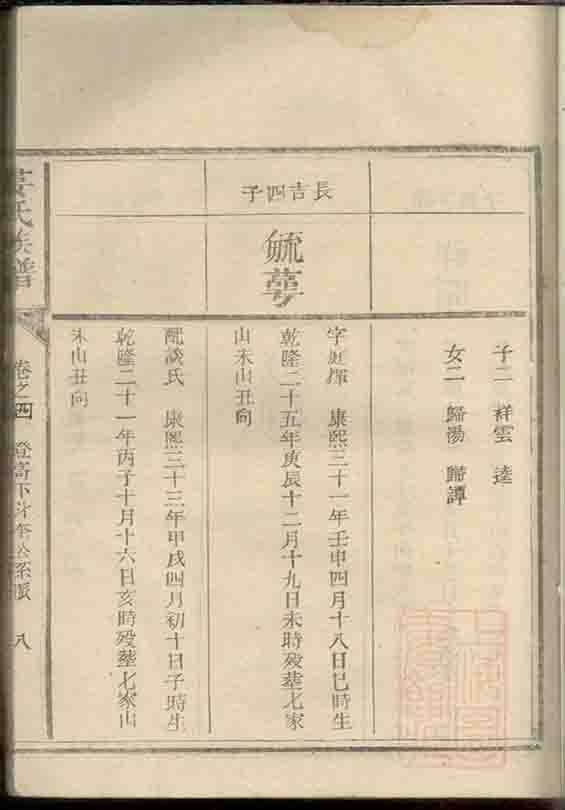 子二 祥雲 逵
女二 歸湯 歸譚
長吉四子
毓蕚
字庭燡 康熙三十一年壬申四月十八日巳時生
乾隆二十五年庚辰十二月十九日未時殁塟七家
山未山丑向
配談氏 康熙三十三年甲戌四月初十日子時生
乾隆二十一年丙子十月十六日亥時殁塟七家山
未山丑向
姜氏族譜
卷之四 登高下斗奎公系派 八